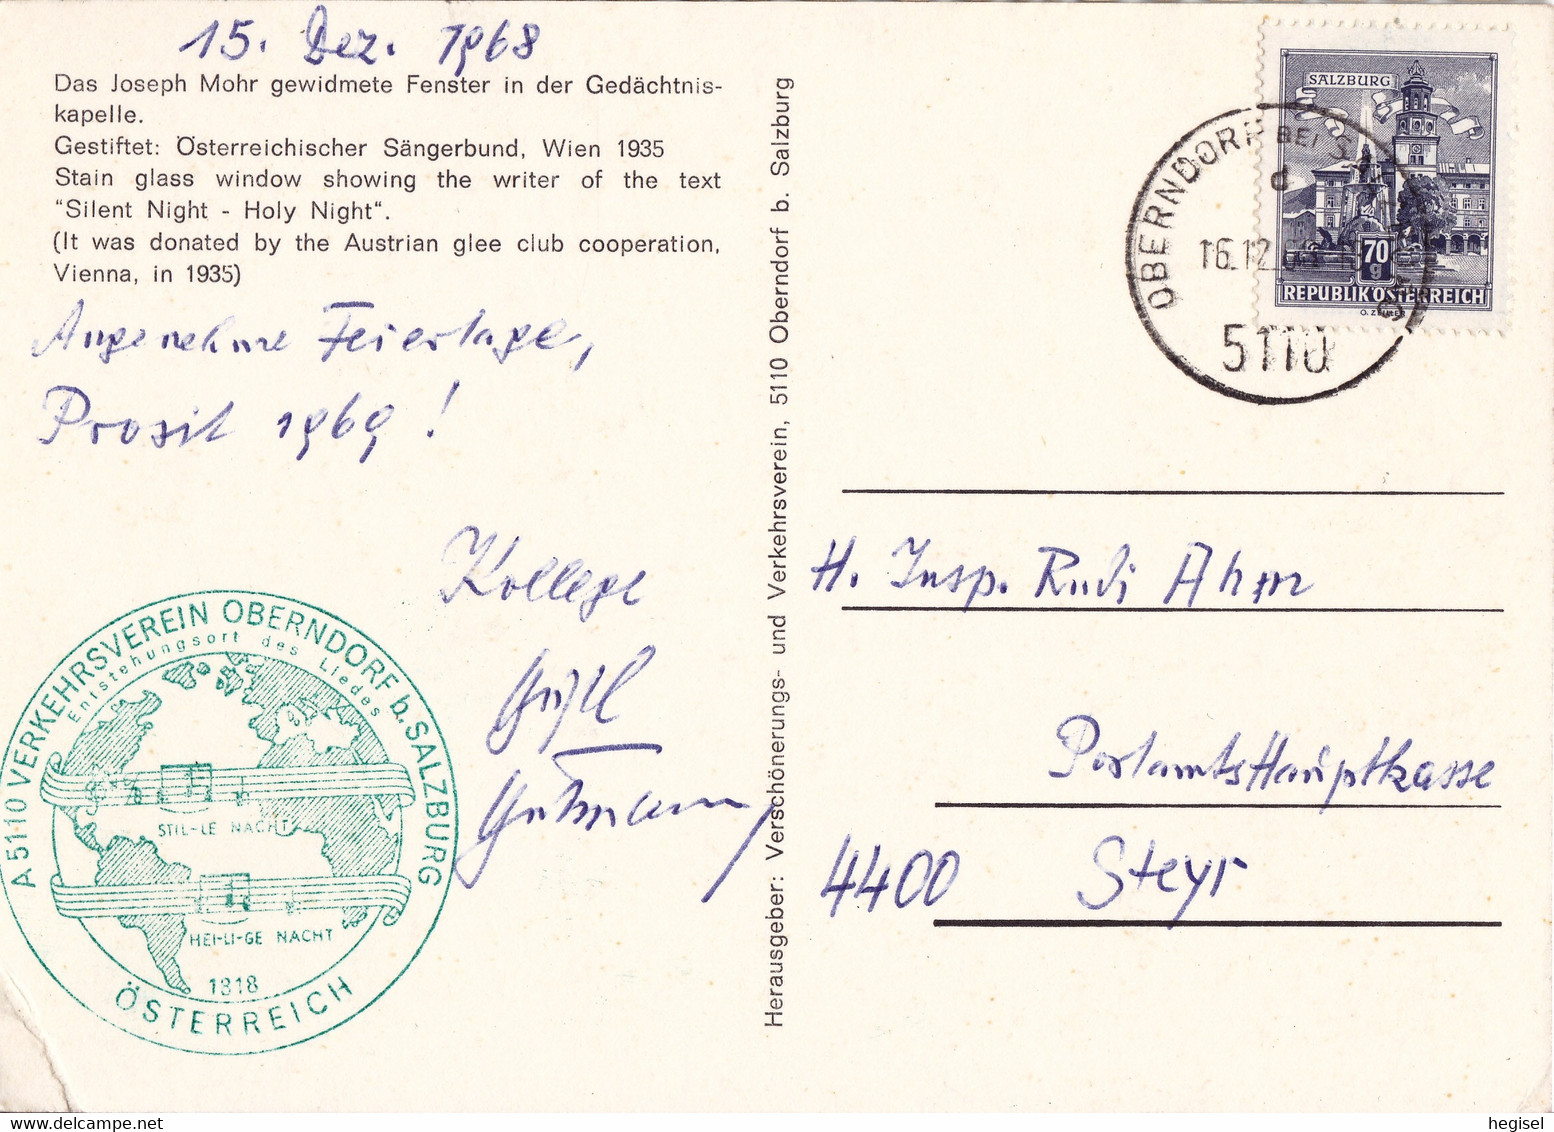 15. Dez. 1968
Das Joseph Mohr gewidmete Fenster in der Gedächtnis-
kapelle.
Gestiftet: Österreichischer Sängerbund, Wien 1935
Stain glass window showing the writer of the text
"Silent Night - Holy Night".
(It was donated by the Austrian glee club cooperation,
Vienna, in 1935)
Angenehme Feiertage,
Prosit 1969!
Kollege
A 5110 VERKEHRSVEREIN OBERNDORF b. SALZBURG
Entstehungsort des Liedes
STIL-LE NACHT
HEI-LI-GE NACHT
1818
ÖSTERREICH
Herausgeber: Verschönerungs- und Verkehrsverein, 5110 Oberndorf b. Salzburg
SALZBURG
70
g
REPUBLIK ÖSTERREICH
O. ZEILLER
OBERNDORF BEI
16.12
5110
H. Insp. Rudi Ahm
Postamts Hauptkasse
4400 Steyr
hegisel